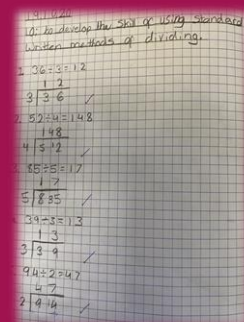 LO: to develop the skill of using standard
written methods of dividing.
36÷3=12
1 2
3 3 6
2. 52÷4=148
148
4 5 12
85÷5=17
1 7
5 8 35
39÷3=13
1 3
3 3 9
94÷2=47
4 7
2 9 14